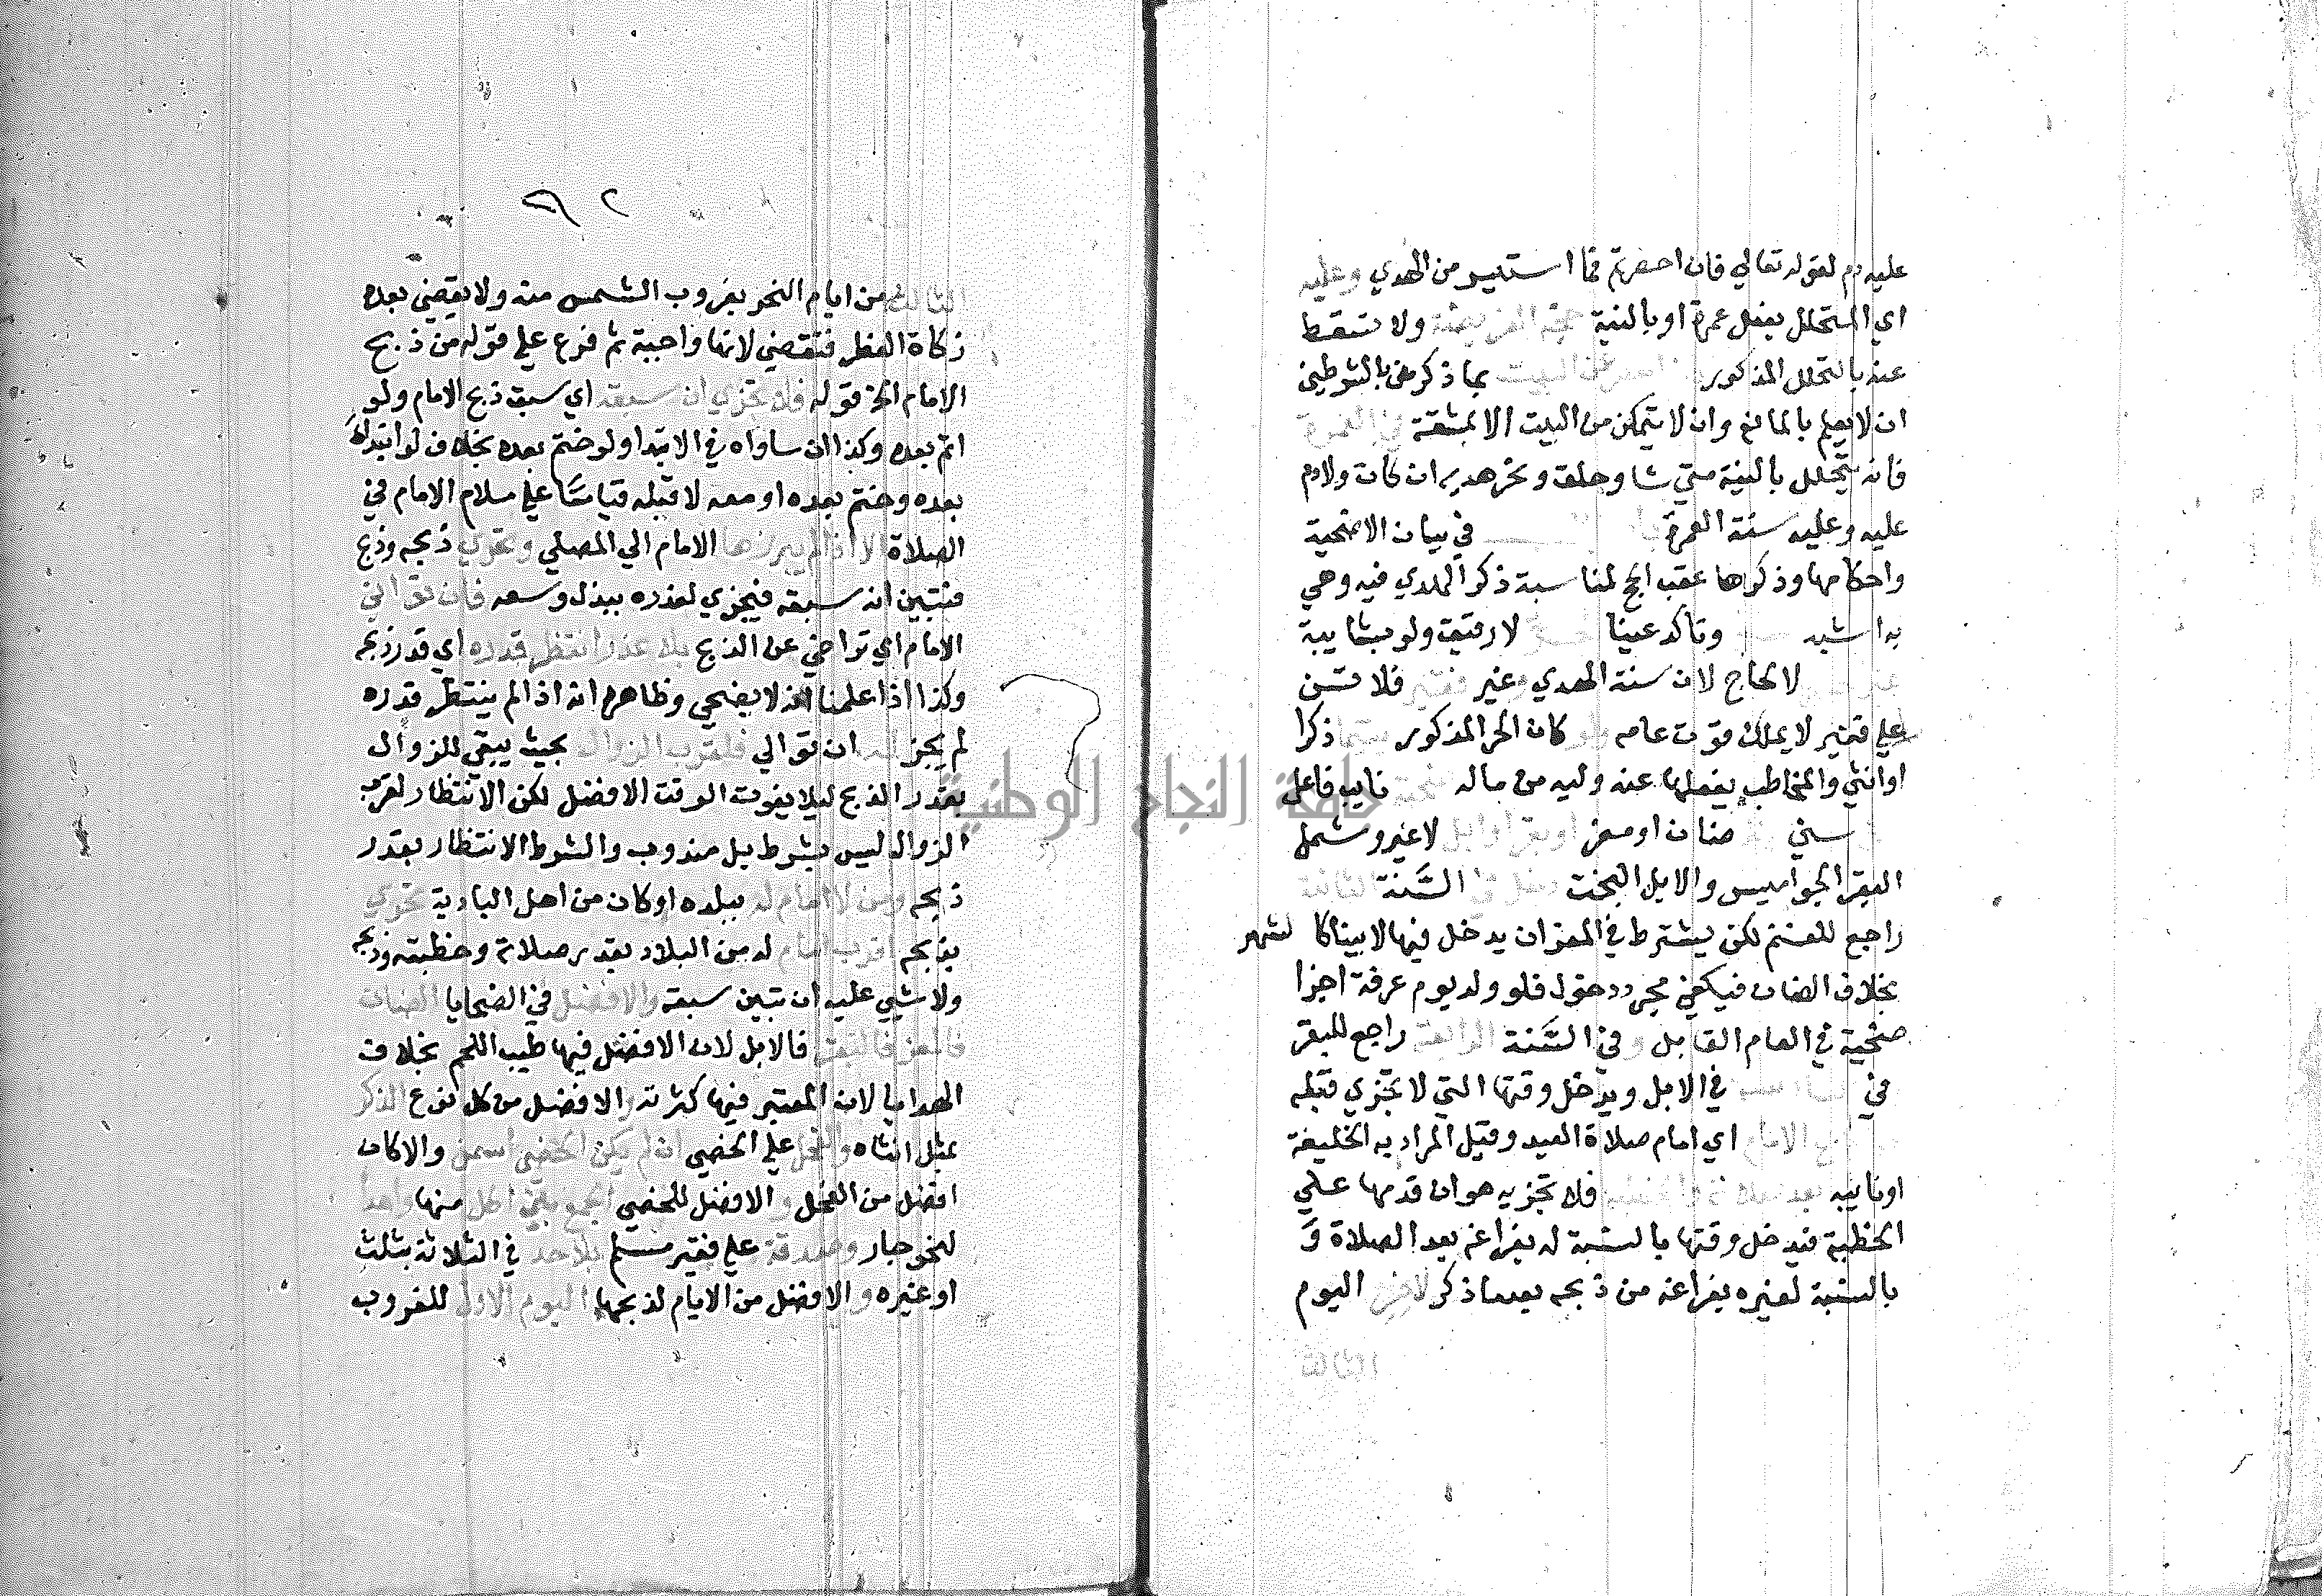 عليه دم لقوله تعالي فان احصرتم فما استيسر من الهدي وعليه
اي المتحلل بفعل عمرة او بالنية حجة الفريضة ولا تسقط
عنه بالتحلل المذكور البيت بما ذكر من بالشرطين
ان لا يعلم بالمانع وان لا يتمكن من البيت الا بمشقة في العمرة
فانه يتحلل بالنية متي شا وحلق ونحر هديه ان كان ولا دم
عليه وعليه سنة العمرة في بيان الاضحية
واحكامها وذكرها عقب الحج لمناسبة ذكر الهدي فيه وهي
به اشبه وتاكد عينا لا رقيق ولو بشايبة
لا لحاج لان سنة الهدي وغير فقير فلا تسن
علي فقير لا يملك قوت عامه ولو كان الحر المذكور يتيما ذكرا
او انثي والمخاطب بفعلها عنه وليه من ماله نايب فاعل
سني ضان او معز او بقر او ابل لا غير وشمل
البقر الجواميس والابل البخت دخل في السنة الثانية
راجع للغنم لكن يشترط في المعز ان يدخل فيها لا بينا كا لشهر
بخلاف الضان فيكفي مجرد دخول فلو ولد يوم عرفة اجزا
ضحية في العام القابل وفي السنة الرابعة راجع للبقر
في في الابل ويدخل وقتها التي لا تجزي قبله
الامام اي امام صلاة العيد وقيل المراد به الخليفة
او نايبه بعد صلاته والخطبة فلا تجزيه هو ان قدمها علي
الخطبة فيدخل وقتها بالنسبة له بفراغه بعد الصلاة و
بالنسبة لغيره بفراغه من ذبحه بعد ما ذكر لاخر اليوم
الثالث
٩٢
الثالث من ايام النحر بغروب الشمس منه ولا يقضي بعده
زكاة الفطر فتقضي لانها واجبة ثم فرع علي قوله من ذبح
الامام الخ قوله فلا تجزي ان سبقه اي سبق ذبح الامام ولو
اتم بعده وكذا ان ساواه في الابتدا ولو ختم بعده بخلاف لو ابتدا
بعده وختم بعده او معه لا قبله قياسا علي سلام الامام في
الصلاة الا اذا لم يبرزها الامام الي المصلي وتحري ذبحه وذبح
فتبين انه سبقه فيجزي لعذره ببذل وسعه فان تواني
الامام اي تراخي عن الذبح بلا عذر انتظر قدره اي قدر ذبحه
وكذا اذا علمنا انه لا يضحي وظاهره انه اذا لم ينتظر قدره
لم يجز له ان توالي فلقرب الزوال بحيث يبقي للزوال
بقدر الذبح ليلا يفوت الوقت الافضل لكن الانتظار لقرب
الزوال ليس بشرط بل مندوب والشرط الانتظار بقدر
ذبحه ومن لا امام له ببلده او كان من اهل البادية تحري
بذبحه اقرب امام له من البلاد بقدر صلاته وخطبته وذبحه
ولا شي عليه ان تبين سبقه والافضل في الضحايا الضان
فالمعز فالبقر فالابل لان الافضل فيها طيب اللحم بخلاف
الهدايا لان المعتبر فيها كثرته والافضل من كل نوع الذكر
عثل انثاه والفحل علي الخصي ان لم يكن الخصي اسمن والا كان
افضل من الفحل والافضل للمضحي الجمع بين اكل منها واهدا
لنحو جار وصدقة علي فقير مسلم بلا حد في الثلاثة بثلث
او غيره والافضل من الايام لذبحها اليوم الاول للغروب